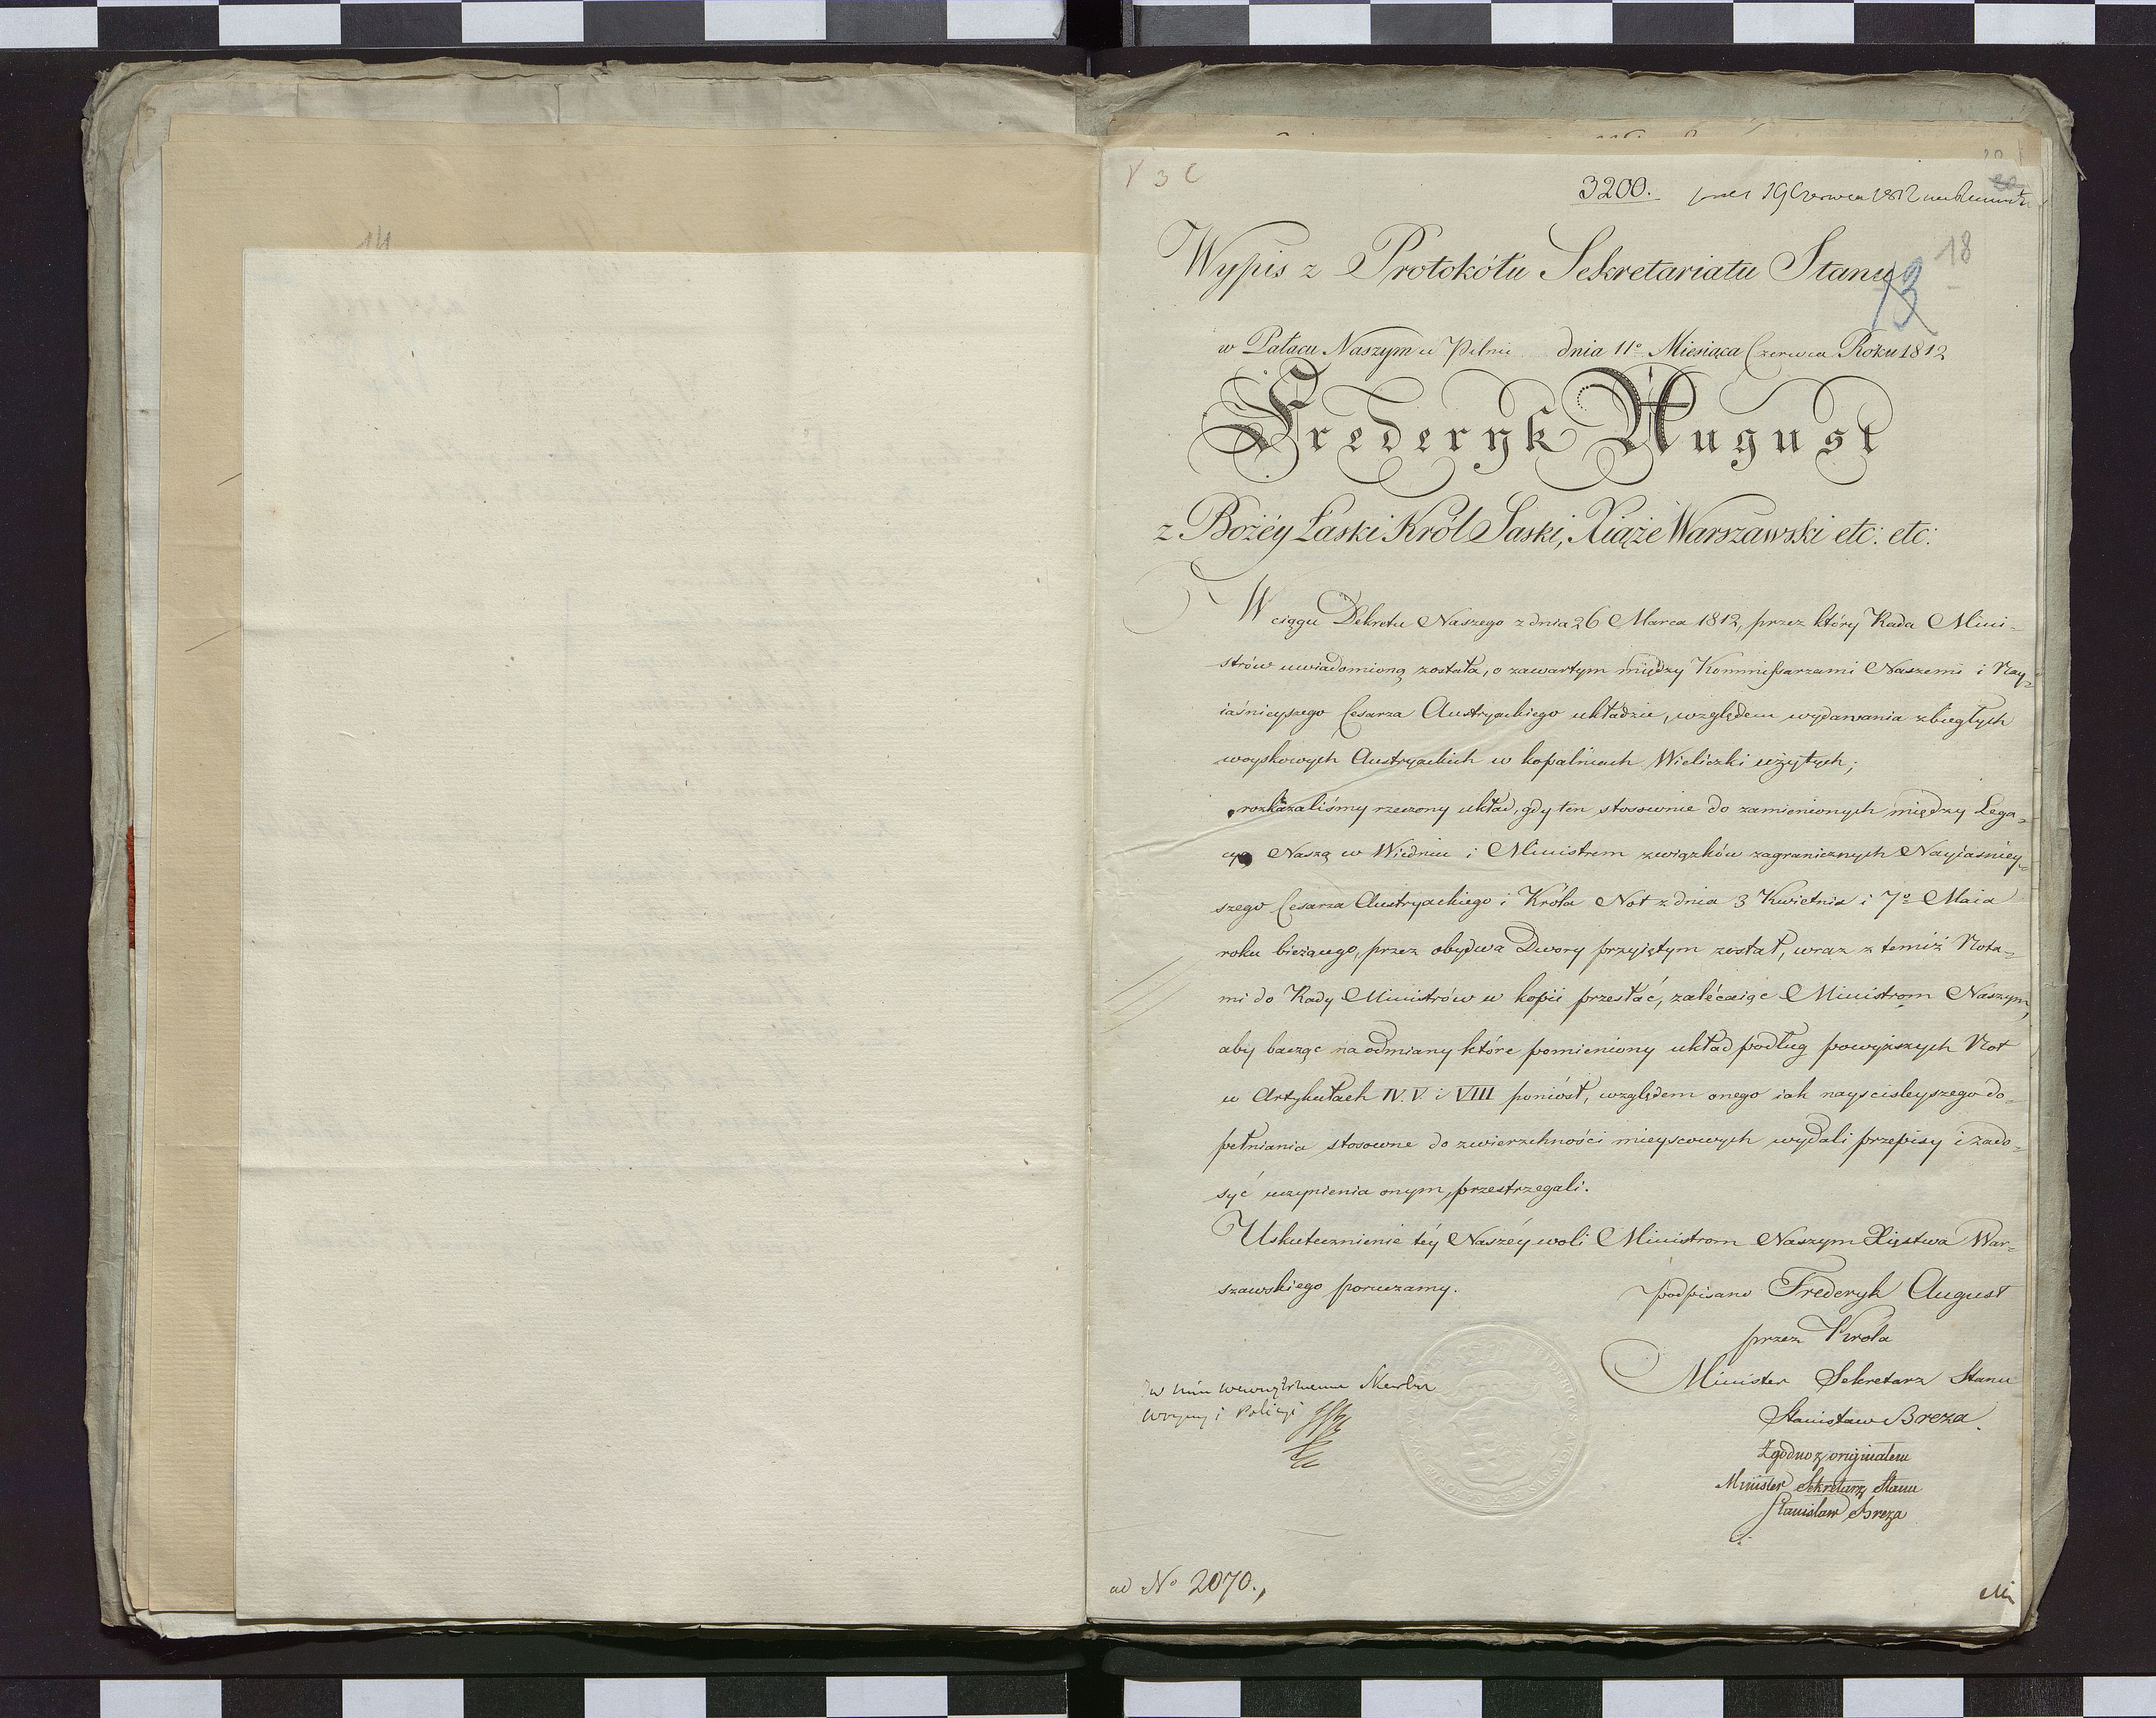 3200.
Wypis z Protokółu Sekretariatu Stanu
18
13
w Pałacu Naszym w Pilnic dnia 11º Miesiąca Czerwca Roku 1812
Fryderyk August
z Bożéy Łaski Król Saski, Xiąże Warszawski etc: etc:
W ciągu Dekretu Naszego z dnia 26 Marca 1812, przez który Rada Mini-
strów uwiadomioną została, o zawartym między Kommissarzami Naszemi i Nay-
iaśnieyszego Cesarza Austryackiego układzie, względem wydawania zbiegłych
woyskowych Austryackich w kopalniach Wieliczki użytych;
rozkazaliśmy rzeczony układ, gdy ten stosownie do zamienionych między Lega-
cyą Naszą w Wiedniu i Ministrem związków zagranicznych Nayiaśniey-
szego Cesarza Austryackiego i Króla Not z dnia 3 Kwietnia i 7º Maia
roku bieżącego, przez obydwa Dwory przyiętym został, wraz z temiż Nota-
mi do Rady Ministrów w kopii przesłać, zalécaiąc Ministrom Naszym,
aby bacząc na odmiany które pomieniony układ podług powyższych Not
w Artykułach IV. V. i VIII poniósł, względem onego iak nayściśleyszego do-
pełniania stosowne do zwierzchności mieyscowych wydali przepisy i zado-
syć uczynienia onym, przestrzegali.
Uskutecznienie téy Naszéy woli Ministrom Naszym Xięstwa War-
szawskiego poruczamy.
podpisano Frederyk August
przez Króla
Minister Sekretarz Stanu
Stanisław Breza.
Zgodno z originałem
Minister Sekretarz Stanu
Stanisław Breza
Woyny i Policyi
ad Nº 2070.,